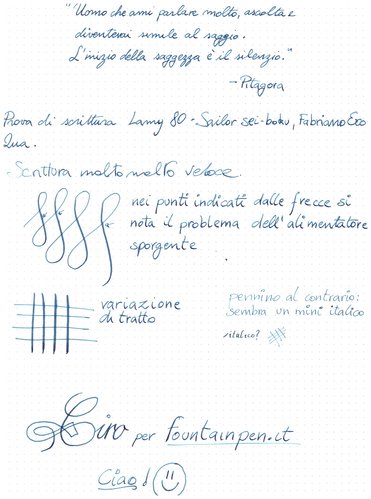 "Uomo che ami parlare molto, ascolta e
diventerai simile al saggio.
L'inizio della saggezza è il silenzio."
- Pitagora
Prova di scrittura Lamy 80 - Sailor sei-boku, Fabriano Eco
Qua.
- Scrittura molto molto veloce.
nei punti indicati dalle frecce si
nota il problema dell'alimentatore
sporgente.
variazione
di tratto
pennino al contrario:
sembra un mini italico
italico?
Ciro per fountainpen.it
Ciao!